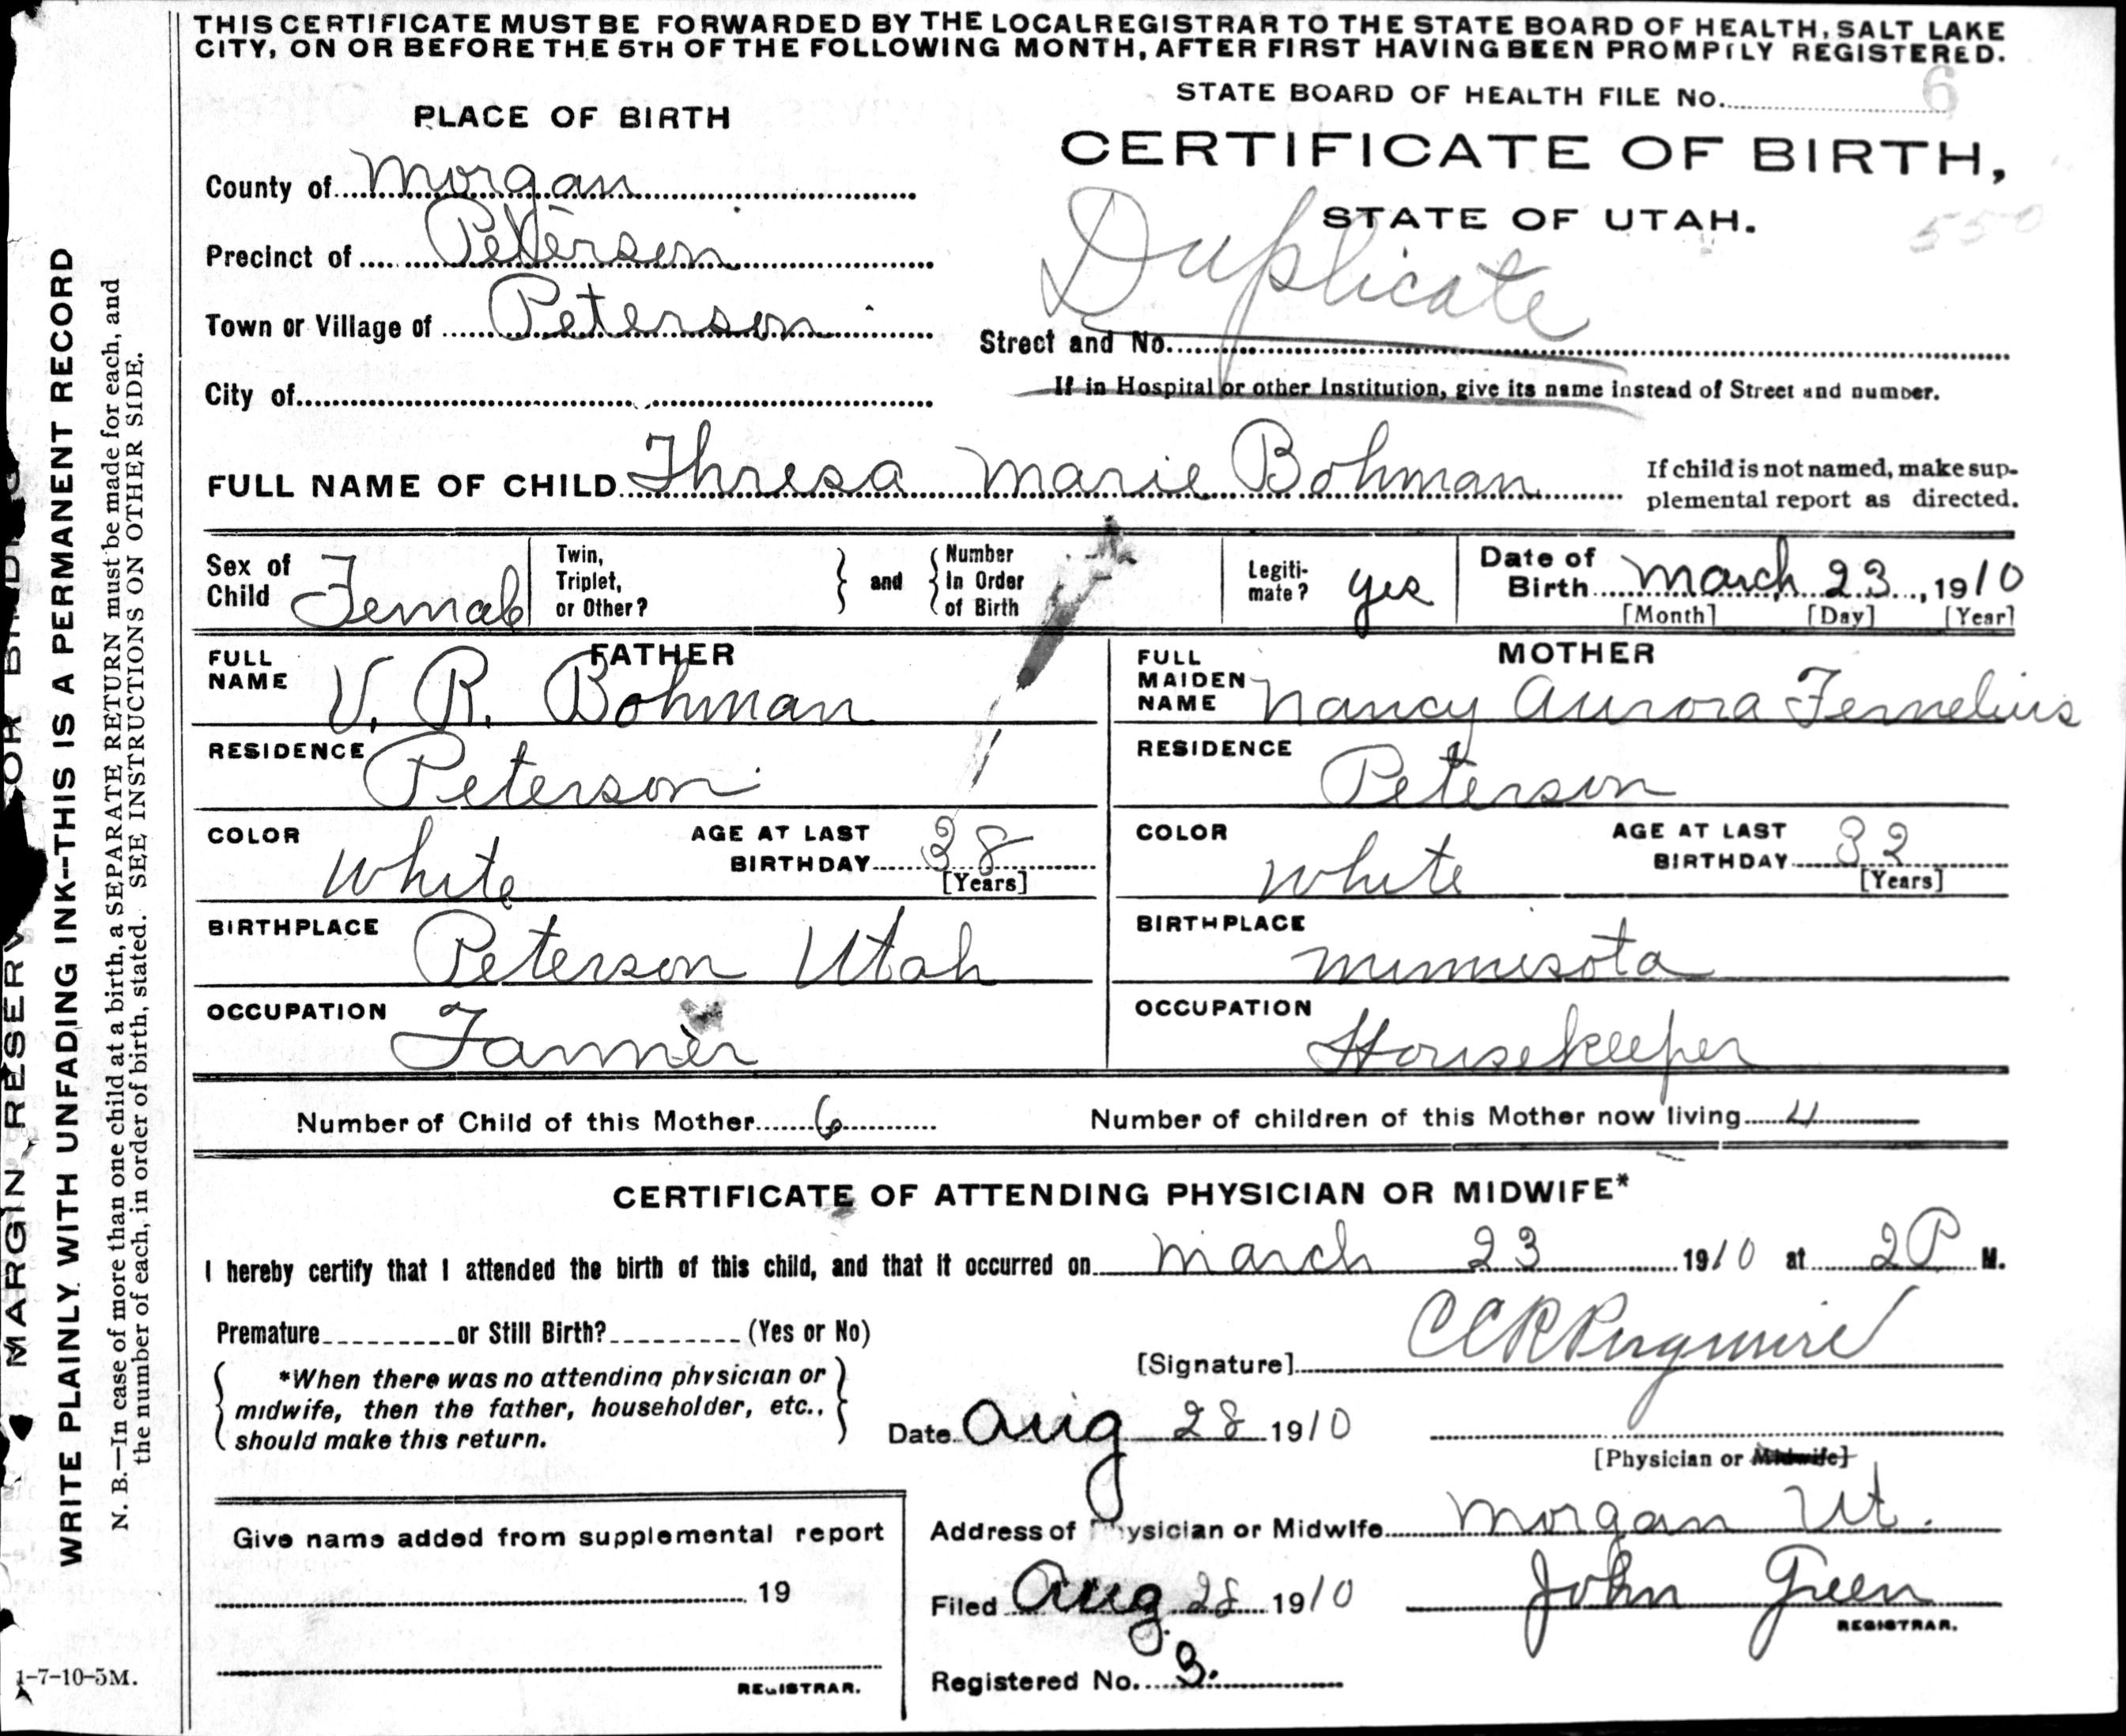 THIS CERTIFICATE MUST BE FORWARDED BY THE LOCAL REGISTRAR TO THE STATE BOARD OF HEALTH, SALT LAKE
CITY, ON OR BEFORE THE 5TH OF THE FOLLOWING MONTH, AFTER FIRST HAVING BEEN PROMPTLY REGISTERED.
STATE BOARD OF HEALTH FILE No. 6
PLACE OF BIRTH
CERTIFICATE OF BIRTH,
STATE OF UTAH.
550
Duplicate
County of Morgan
Precinct of Peterson
Town or Village of Peterson
Street and No.
City of
If in Hospital or other Institution, give its name instead of Street and number.
FULL NAME OF CHILD Thresa Marie Bohman
If child is not named, make sup-
plemental report as directed.
Sex of Child Female
Twin, Triplet, or Other? } and { Number In Order of Birth
Legiti-mate? yes
Date of Birth March 23, 1910
[Month] [Day] [Year]
FATHER
FULL NAME V. R. Bohman
RESIDENCE Peterson
COLOR White AGE AT LAST BIRTHDAY 38
[Years]
BIRTHPLACE Peterson Utah
OCCUPATION Farmer
MOTHER
FULL MAIDEN NAME Nancy Aurora Fernelius
RESIDENCE Peterson
COLOR White AGE AT LAST BIRTHDAY 32
[Years]
BIRTHPLACE Minnesota
OCCUPATION Housekeeper
Number of Child of this Mother 6 Number of children of this Mother now living 4
CERTIFICATE OF ATTENDING PHYSICIAN OR MIDWIFE*
I hereby certify that I attended the birth of this child, and that it occurred on March 23 1910 at 2 P M.
Premature or Still Birth? (Yes or No)
*When there was no attending physician or
midwife, then the father, householder, etc.,
should make this return.
[Signature]
Date Aug 28 1910
[Physician or Midwife]
Address of Physician or Midwife Morgan Ut.
Filed Aug 28 1910 John Green
REGISTRAR.
Registered No. 3.
Give name added from supplemental report
19
REGISTRAR.
1-7-10-5M.
MARGIN RESERV OR
WRITE PLAINLY WITH UNFADING INK--THIS IS A PERMANENT RECORD
N. B.—In case of more than one child at a birth, a SEPARATE RETURN must be made for each, and
the number of each, in order of birth, stated. SEE INSTRUCTIONS ON OTHER SIDE.